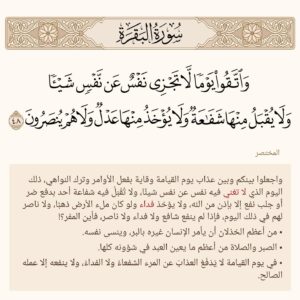 سُورَةُ البَقَرَةِ
وَٱتَّقُواْ يَوۡمٗا لَّا تَجۡزِي نَفۡسٌ عَن نَّفۡسٖ شَيۡـٔٗا
وَلَا يُقۡبَلُ مِنۡهَا شَفَٰعَةٞ وَلَا يُؤۡخَذُ مِنۡهَا عَدۡلٞ وَلَا هُمۡ يُنصَرُونَ ٤٨
المختصر
واجعلوا بينكم وبين عذاب يوم القيامة وقاية بفعل الأوامر وترك النواهي، ذلك
اليوم الذي لا تغني فيه نفس عن نفس شيئا، ولا تُقْبَلُ فيه شفاعة أحد بدفع ضر
أو جلب نفع إلا بإذن من الله، ولا يؤخذ فداء ولو كان ملء الأرض ذهبًا، ولا ناصر
لهم في ذلك اليوم، فإذا لم ينفع شافع ولا فداء ولا ناصر، فأين المفر؟!
• من أعظم الخذلان أن يأمر الإنسان غيره بالبر، وينسى نفسه.
• الصبر والصلاة من أعظم ما يعين العبد في شؤونه كلها.
• في يوم القيامة لا يَدْفَعُ العذابَ عن المرء الشفعاءُ ولا الفداءُ، ولا ينفعه إلا عمله
الصالح.